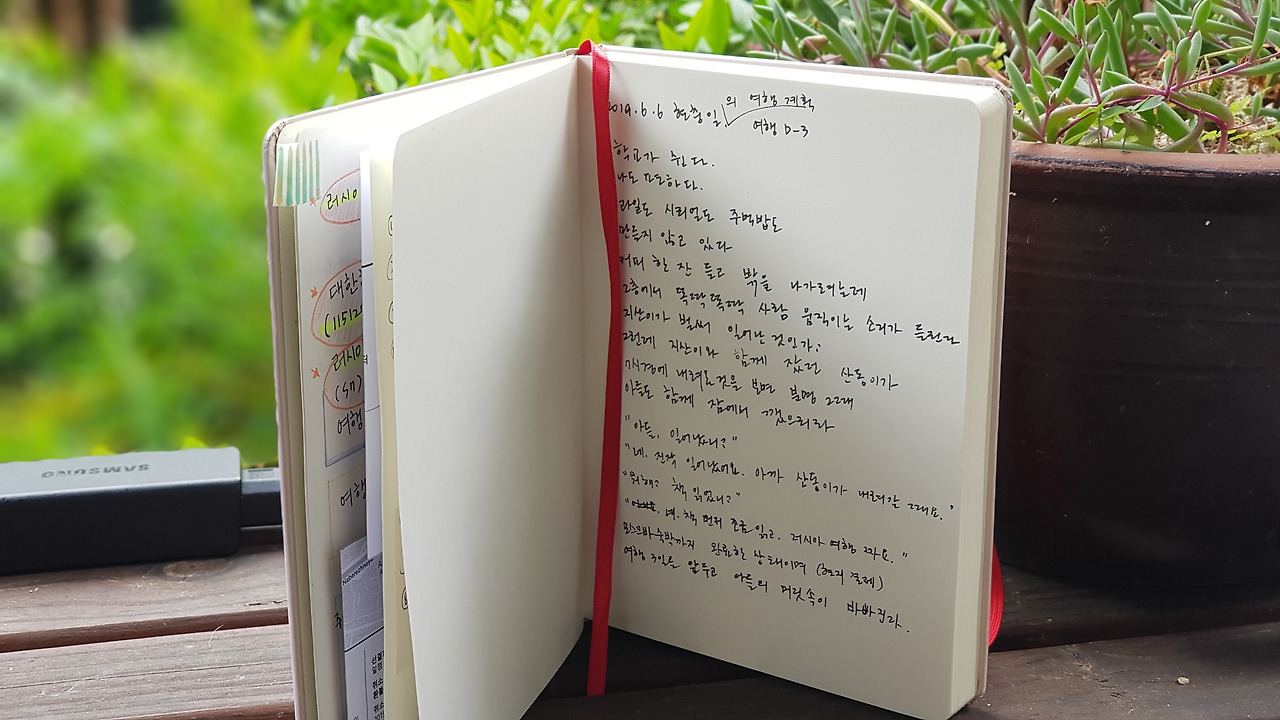 러시아
대한
(11512
러시아
(SII)
여행
여행
SAMSUNG
2019.6.6 현충일의 여행 계획
여행 D-3
학교가 쉰다.
나도 파토하다.
과일도 시리얼도 주먹밥도
만들지 않고 있다
커피 한 잔 들고 밖을 나가려는데
2층에서 뚝딱뚝딱 사람 움직이는 소리가 들린다
지산이가 벌써 일어난 것인가?
그런데 지산이와 함께 잤던 산동이가
7시경에 내려온것을 보면 분명 그때
아들도 함께 잠에서 깼으리라
"아들, 일어났니?"
"네. 진작 일어났어요. 아까 산동이가 내려갈 그때요."
"뭐해? 책 읽었니?"
"네. 책 먼저 조금 읽고. 러시아 여행 짜요."
모스크바 숙박까지 완료한 상태이며 (현지 결제)
여행 3일을 앞두고 아들의 머릿속이 바빠진다.